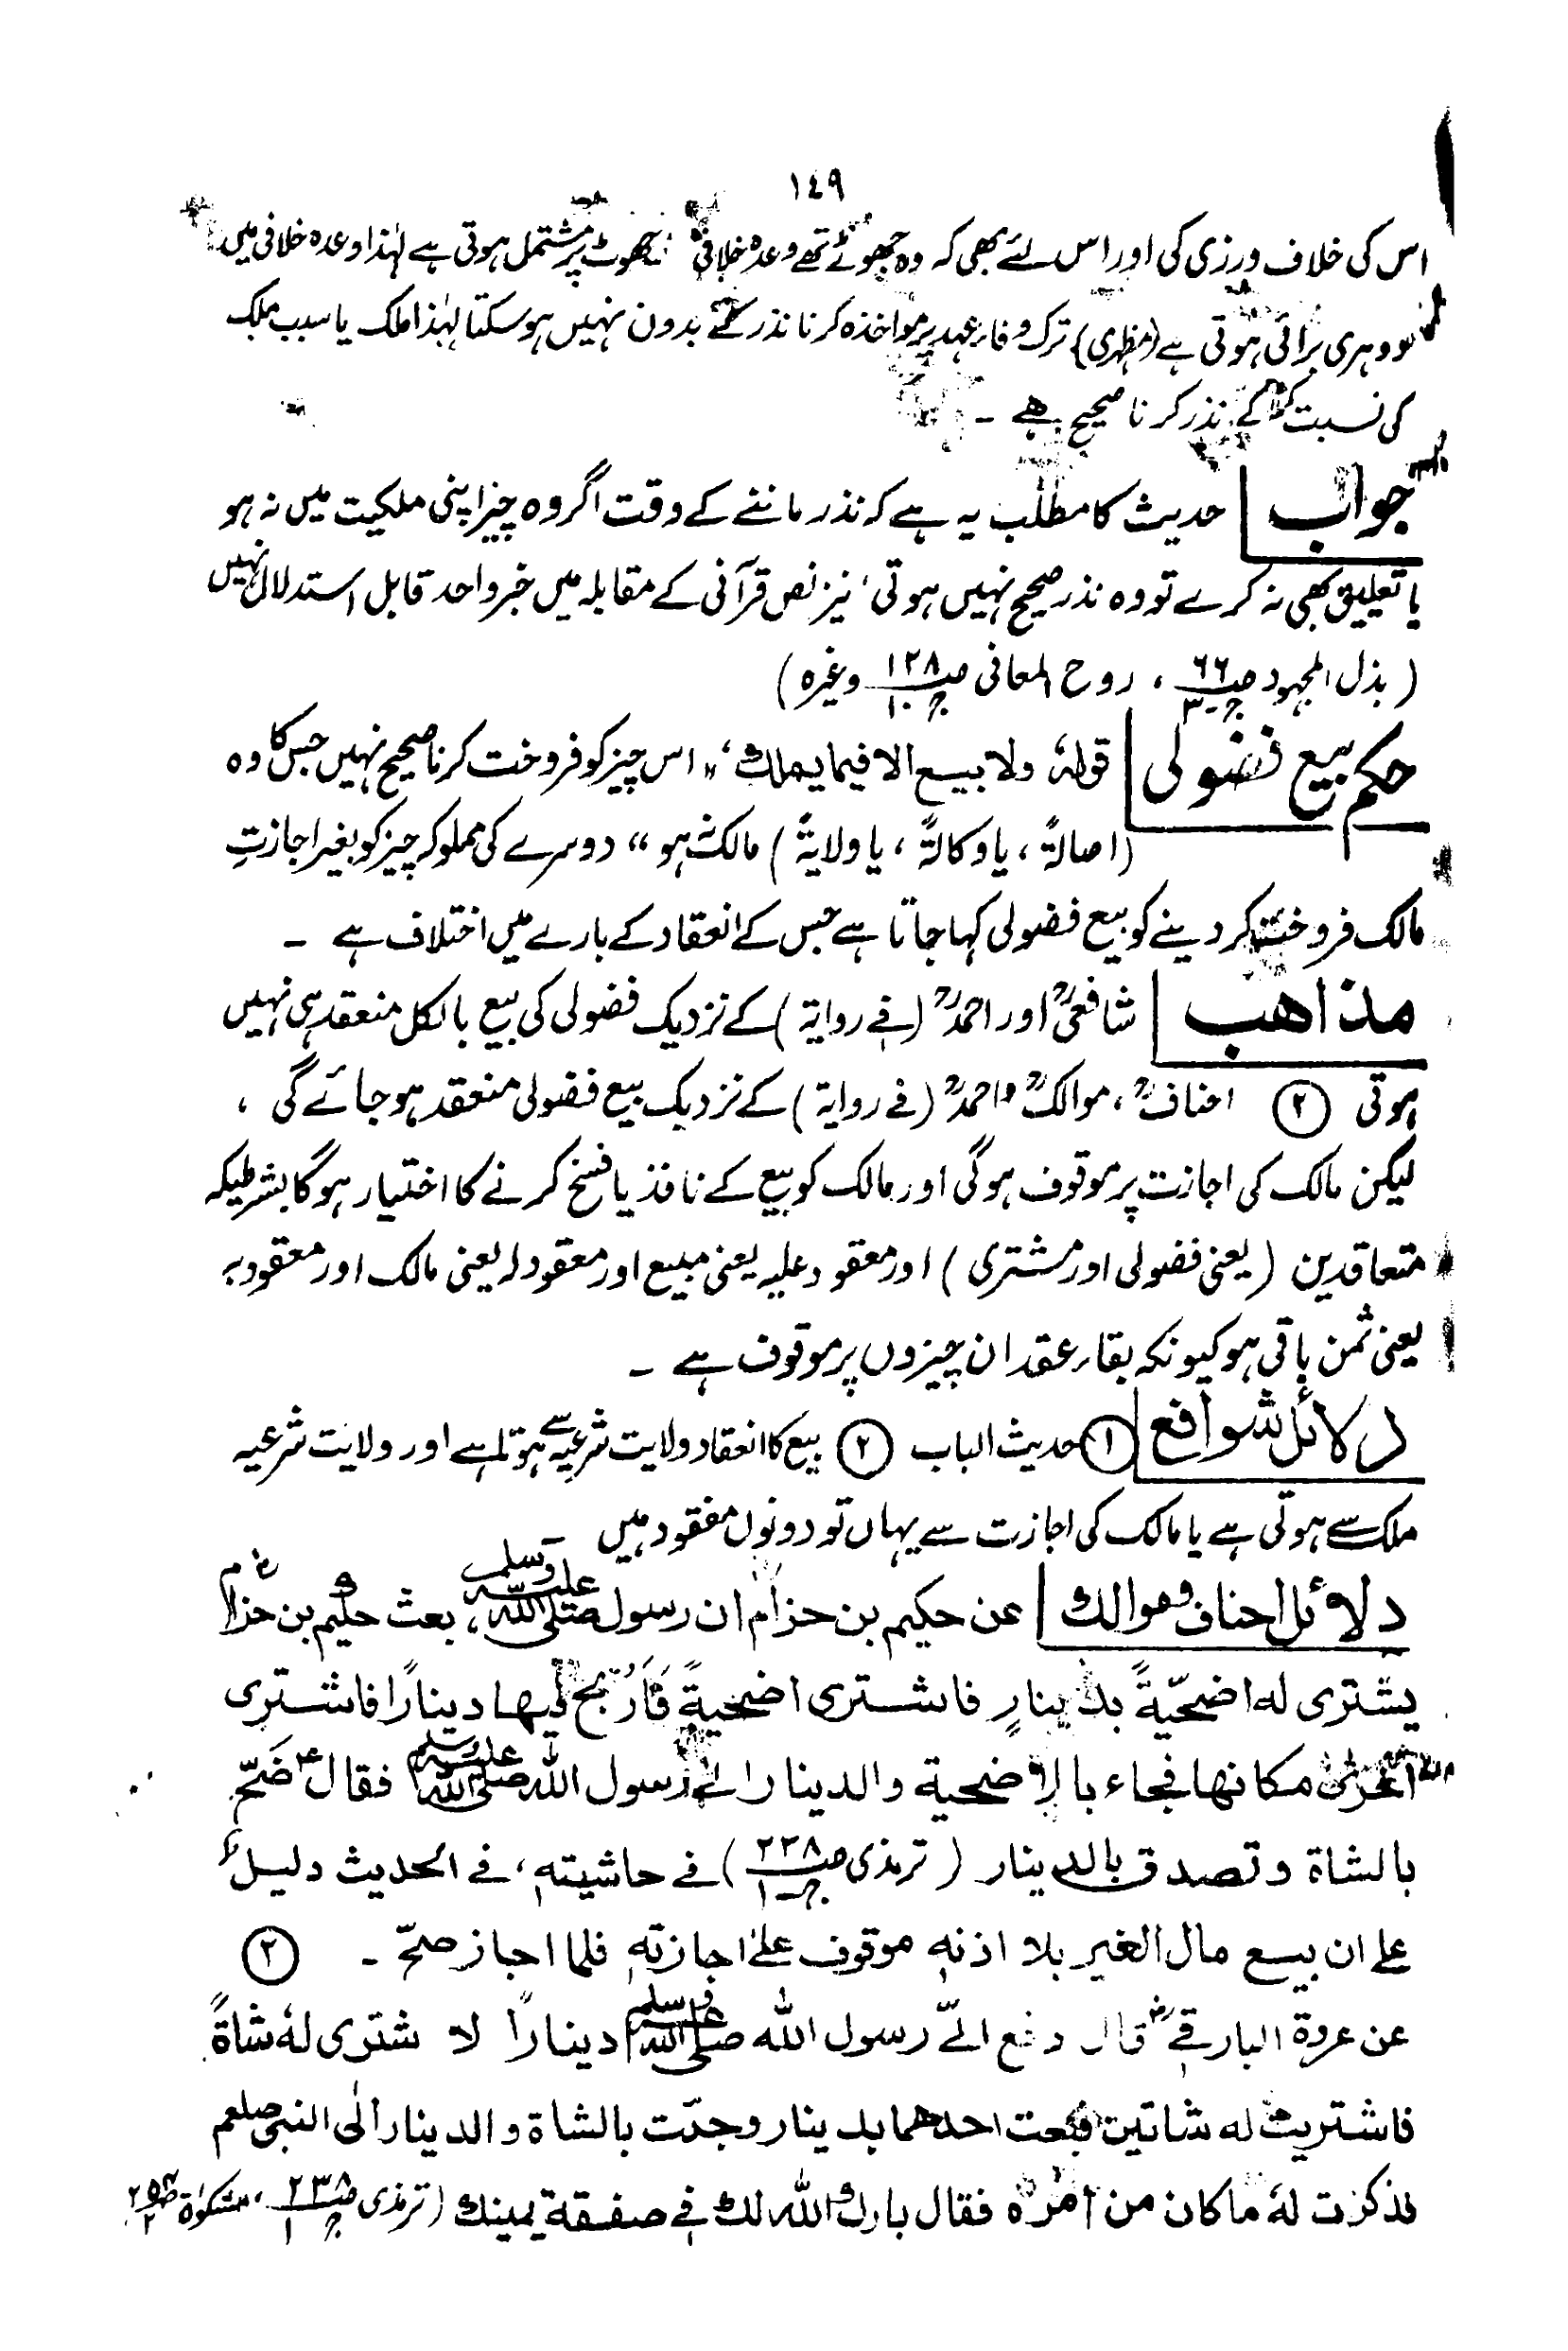 ١٤٩
اس کی خلاف ورزی کی اور اس لئے بھی کہ وہ جھوٹے تھے وعدہ خلافی جھوٹ پر مشتمل ہوتی ہے لہٰذا وعدہ خلافی میں
دوہری برائی ہوتی ہے (مظہری) ترک وفاء عہد پر مواخذہ کرنا نذر کے بدون نہیں ہوسکتا لہٰذا ملک یا سبب ملک
کی نسبت کر کے نذر کرنا صحیح ہے ۔
جواب حدیث کا مطلب یہ ہے کہ نذر ماننے کے وقت اگر وہ چیز اپنی ملکیت میں نہ ہو
یا تعلیق بھی نہ کرے تو وہ نذر صحیح نہیں ہوتی، نیز نص قرآنی کے مقابلہ میں خبر واحد قابل استدلال نہیں
( بذل المجہود ص ٦٦ ج ٣ ، روح المعانی ص ١٢٨ ج ١٠ وغیرہ )
حکم بیع فضولی قولہٗ ولا بیع الا فیما یملک، "اس چیز کو فروخت کرنا صحیح نہیں جس کا وہ
(اصالۃً ، یا وکالۃً ، یا ولایۃً ) مالک نہ ہو" دوسرے کی مملوکہ چیز کو بغیر اجازتِ
مالک فروخت کر دینے کو بیع فضولی کہا جاتا ہے جس کے انعقاد کے بارے میں اختلاف ہے ۔
مذاهب شافعیؒ اور احمدؒ (فے روایۃ ) کے نزدیک فضولی کی بیع بالکل منعقد ہی نہیں
ہوتی ② احنافؒ، موالکؒ واحمدؒ (فے روایۃ ) کے نزدیک بیع فضولی منعقد ہوجائے گی ،
لیکن مالک کی اجازت پر موقوف ہوگی اور مالک کو بیع کے نافذ یا فسخ کرنے کا اختیار ہوگا بشرطیکہ
متعاقدین (یعنی فضولی اور مشتری ) اور معقود علیہ یعنی مبیع اور معقود لہ یعنی مالک اور معقود بہ
یعنی ثمن باقی ہو کیونکہ بقاء عقد ان چیزوں پر موقوف ہے ۔
دلائل شوافع ① حدیث الباب ② بیع کا انعقاد ولایت شرعیہ سے ہوتا ہے اور ولایت شرعیہ
ملک سے ہوتی ہے یا مالک کی اجازت سے یہاں تو دونوں مفقود ہیں ۔
دلائل احناف و موالک عن حکیم بن حزام ان رسول ﷺ بعث حکیم بن حزام
یشتری له اضحیّةً بدینارٍ فاشتری اضحیةً فَأُربح فیها دینارًا فاشتری
اخری مکانها فجاء بالاضحیة والدینار الے رسول الله ﷺ فقال ضَحّ
بالشاة وتصدق بالدینار ( ترمذی ص ٢٣٨ ج ١ ) فے حاشیتهٖ، فے الحدیث دلیل
علے ان بیع مال الغیر بلا اذنهٖ موقوف علےٰ اجازتهٖ فلما اجاز صحّ ۔ ②
عن عروة البارقےؓ قال دفع الیّ رسول الله ﷺ دینارًا لا شتری لهٗ شاةً
فاشتریت له شاتین فبعت احدهما بدینار وجئت بالشاة والدینار الی النبی صلعم
فذکرت لهٗ ما کان من أمره فقال بارك الله لك فے صفقة یمینك (ترمذی ص ٢٣٨ ج ١، مشکوٰة ص ٢٥٤ ج ٢